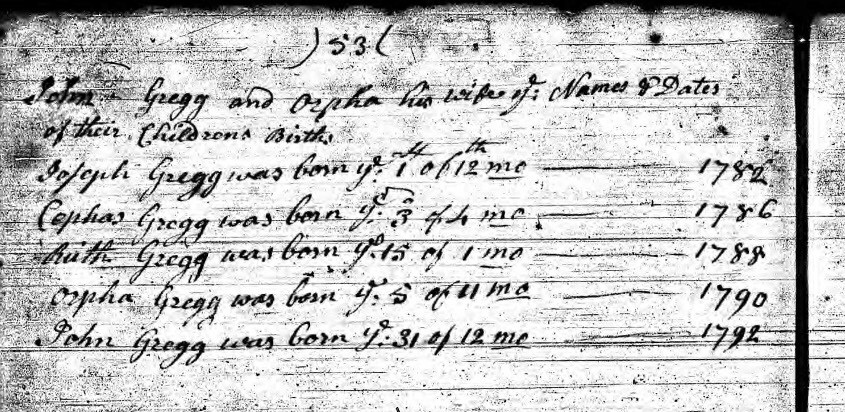 ) 53 (
John Gregg and Orpha his wife ye: Names & Dates
of their Childrens Births
Joseph Gregg was born ye: 1st of 12th mo 1782
Cephas Gregg was born ye: 3 of 4 mo 1786
Ruth Gregg was born ye 15 of 1 mo 1788
Orpha Gregg was born ye: 5 of 11 mo 1790
John Gregg was born ye: 31 of 12 mo 1792